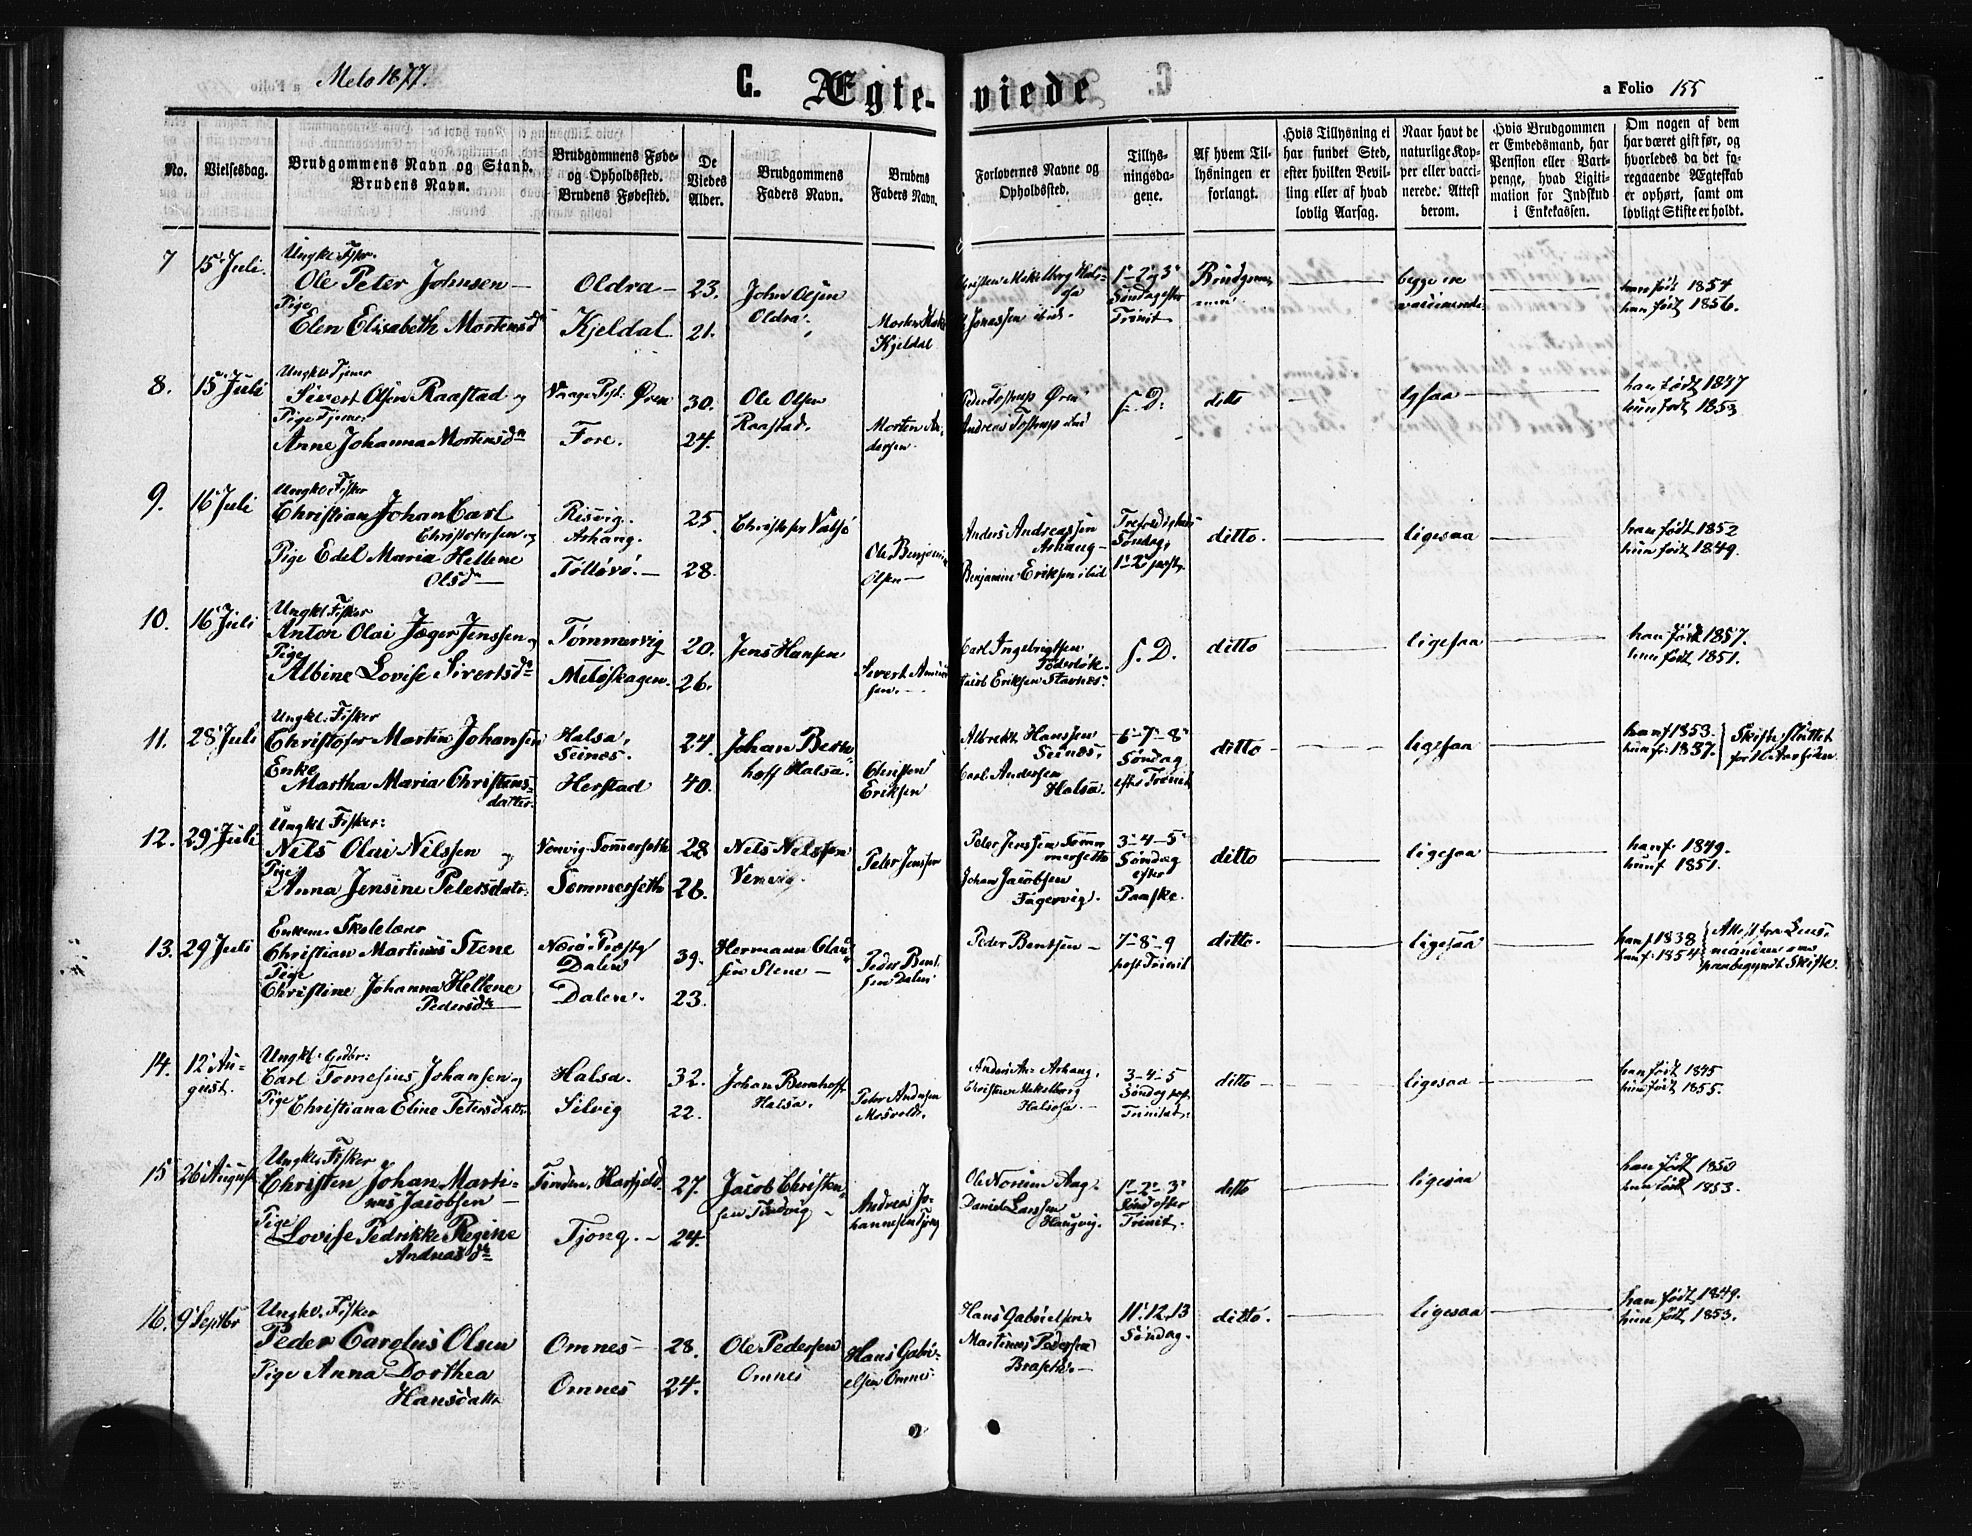 Melo 1877.
C. Ægte-viede
a Folio 155
No.
Vielsesdag.
Brudgommens Navn og Stand.
Brudens Navn.
Brudgommens Føde-
og Opholdssted.
Brudens Fødested.
De
Viedes
Alder.
Brudgommens
Faders Navn.
Brudens
Faders Navn.
Forlovernes Navne og
Opholdssted.
Tillys-
ningsda-
gene.
Af hvem Til-
lysningen er
forlangt.
Hvis Tillysning ei
har fundet Sted,
efter hvilken Bevil-
ling eller af hvad
lovlig Aarsag.
Naar havt de
naturlige Kop-
per eller vacci-
nerede. Attest
derom.
Hvis Brudgommen
er Embedsmand, har
Pension eller Vart-
penge, hvad Ligiti-
mation for Indskud
i Enkekassen.
Om nogen af dem
har været gift før, og
hvorledes da det fo-
regaaende Ægteskab
er ophørt, samt om
lovligt Skifte er holdt.
7 15 Juli.
Ungkl. Fisker
Ole Peter Johnsen
Pige
Elen Elisabeth Mortensd
Oldra
Kjeldal
23.
21.
John Olsen
Oldra
Morten
Kjeldal
Jonassen ibid.
1 - 2 og 3
Søndag efter
Trinit
begge ere
vaccinerede
han født 1854
hun født 1856.
8. 15 Juli
Sivert Olsen Raastad og
Pige Tjener
Anne Johanna Mortensdtr
Øren
Fore.
30.
24.
Ole Olsen
Raastad.
Morten An-
dersen
Øren
Andreas Tostrup ibid
s. D.
ditto
lgsaa
han født 1847
hun født 1853
9. 16 Juli
Ungkl. Fisker
Christian Johan Carl
Christofersen og
Pige Edel Maria Hellene
Olsd
Risvig.
Arhaug.
25.
28.
Christofer
Ole Benjamin
Olsen
Anders Andreassen
Arhaug
Benjamin Eriksen ibid
Søndag,
ditto.
ligesaa
han født 1852
hun født 1849.
10. 16 Juli
Ungkl. Fisker
Anton Olai Jæger Jenssen og
Pige
Albine Lovise Sivertsdtr
Tømmervig
Meløskagen.
20.
26.
Jens Hansen
Sivert
sen.
Carl Ingebrigtsen
Jacob Eriksen Stavnes
s. D.
ditto
ligesaa
han født 1857.
hun født 1851.
11. 28 Juli
Ungkl. Fisker
Christofer Martin Johansen
Enke
Martha Maria Christens-
datter
Halsa,
Seines.
Herstad
24.
40.
Johan Bern-
hoff Halsa.
Christen
Eriksen
Albrekt Hanssen
Seines.
Carl Andersen
Halsa.
6 - 7 - 8
Søndag
efter Trinit
ditto
ligesaa
han f. 1853.
hun f. 1837.
Skifte sluttet
for 10 Aar siden
12. 29 Juli
Ungkl Fisker:
Nils Olai Nilssen og
Pige
Anna Jensine Petersdatr.
Venvig Sommerseth
Sommerseth
28
26.
Nils Nilssen
Venvig.
Peter Jenssen
Peter Jenssen Somm-
mersetto
Johan Jacobsen
Fagervig.
3 - 4 - 5
Søndag
efter
Paaske.
ditto
ligesaa
han f. 1849.
hun f 1851.
13. 29 Juli
Enkem. Skolelærer
Christian Martinus Stene
Pige
Christine Johanna Hellene
Pedersdtr
Nærø Præstg
Dalen
Dalen.
39.
23.
Hermann Clau-
sen Stene
Peder Bent-
sen Dalen
Peder Bentsen
7 - 8 - 9
post Trinit
ditto.
ligesaa
han f. 1838
hun f. 1854
Attest fra Lens-
manden om
paabegyndt Skifte.
14. 12 Au-
gust.
Ungkl. Gdbr:
Carl Tomesius Johansen og
Pige Christiana Eline Petersdatr.
Halsa.
Silvig
32.
22.
Johan Bernhoff
Halsa.
Peter Andersen
Mosvold.
Anders An- Arhaug.
Christen Mekelborg
Halsosa.
3 - 4 - 5
Søndag post
Trinitat.
ditto
ligesaa
han født 1845
hun født 1855.
15 26 August
Ungkl. Fisker
Christen Johan Marti-
nus Jacobsen
Pige
Lovise Pedrikke Regine
Andreasdtr
Tinden
Tjong.
27.
24.
Jacob Christen-
sen Tindvig
Andreas Jo-
hannesen Tjong
Ole Norum Aag.
Daniel Larssen
Haugvig.
1 - 2 - 3
Sønd efter
Trinit.
ditto
ligesaa
han født 1850
hun født 1853.
16. 9 Septbr
Ungkl. Fisker
Peder Carolus Olsen
Pige Anna Dorthea
Hansdatr
Omnes
Omnes
28.
24.
Ole Pedersen
Omnes
Hans Gabri-
elsen Omnes
Hans Gabrielsen
Martinus Pedersen
11. 12. 13
Søndag.
ditto.
ligesaa
han født 1849.
hun født 1853.